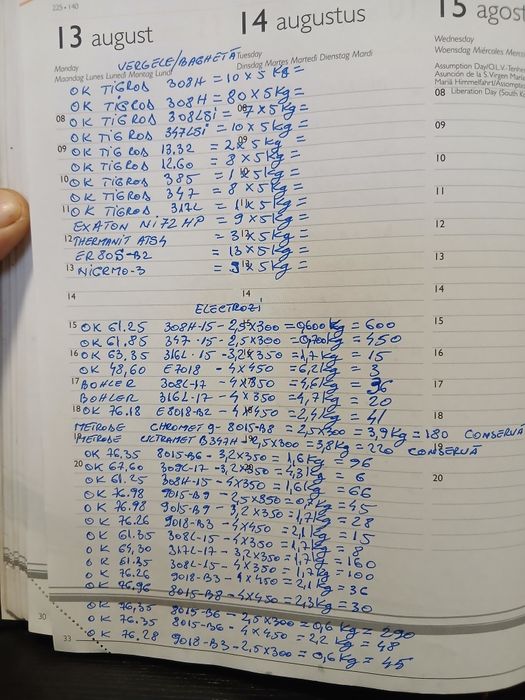 225 • 140
13 august
14 augustus
15 agost
Monday
Maandag Lunes Lunedì Montag Lundi
Tuesday
Dinsdag Martes Martedì Dienstag Mardi
Wednesday
Woensdag Miércoles
Assumption Day/O.L.V.-Ten
Asunción de la S.Virgen Maria
Mariä Himmelfahrt/Assomption
Liberation Day (South Ko
VERGELE/BAGHETĂ
OK TIGROD 308H = 10 x 5 kg =
OK TIGROD 308H = 80 x 5 kg =
08 OK TIGROD 308LSi = 7 x 5 kg =
OK TIGROD 347LSi = 10 x 5 kg =
09 OK TIGROD 13.32 = 2 x 5 kg =
OK TIGROD 12.60 = 8 x 5 kg =
10 OK TIGROD 385 = 1 x 5 kg =
OK TIGROD 347 = 8 x 5 kg =
11 OK TIGROD 317L = 1 x 5 kg =
EXATON Ni72HP = 9 x 5 kg =
12 THERMANIT ATS4 = 3 x 5 kg =
ER80S-B2 = 13 x 5 kg =
13 NiCRMO-3 = x 5 kg =
14
ELECTROZI
15 OK 61.25 308H-15 - 2,5x300 = 0,600 kg = 600
OK 61.85 347-15 - 2,5x300 = 0,700 kg = 450
16 OK 63,35 316L-15 - 3,2x350 = 1,7 kg = 15
OK 48,60 E7018 - 4x450 = 6,2 kg = 3
17 BOHLER 308L-17 - 4x350 = 4,6 kg = 36
BOHLER 316L-17 - 4x350 = 4,7 kg = 20
18 OK 76.18 E8018-B2 - 4x450 = 2,4 kg = 41
METRODE CHROMET 9-8015-B8 = 2,5x300 = 3,9 kg = 180 CONSERVĂ
19 METRODE ULTRAMET B347H - 2,5x300 = 3,8 kg = 220 CONSERVĂ
OK 76,35 8015-B6 - 3,2x350 = 1,6 kg = 96
20 OK 67,60 309L-17 - 3,2x350 = 4,3 kg = 6
OK 61.25 308H-15 - 4x350 = 1,6 kg = 66
OK 76.98 9015-B9 - 2,5x350 = 0,7 kg = 45
OK 76.98 9015-B9 - 3,2x350 = 1,7 kg = 28
OK 76.26 9018-B3 - 4x450 = 2,1 kg = 15
OK 61.35 308L-15 - 4x350 = 1,7 kg = 8
OK 64,30 317L-17 - 3,2x350 = 1,7 kg = 160
OK 61.35 308L-15 - 4x350 = 1,7 kg = 100
OK 76.26 9018-B3 - 4x450 = 2,1 kg = 36
OK 76.96 8015-B8 - 4x450 = 2,3 kg = 30
OK 76,35 8015-B6 - 2,5x300 = 0,6 kg = 290
OK 76.35 8015-B6 - 4x450 = 2,2 kg = 48
OK 76.28 9018-B3 - 2,5x300 = 0,6 kg = 45
08
09
10
11
12
13
14
15
16
17
18
19
20
30
33